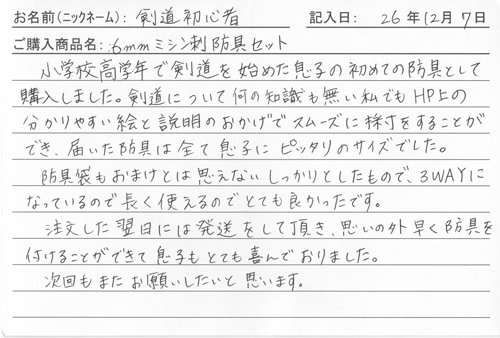 お名前(ニックネーム): 剣道初心者 記入日: 26年12月7日
ご購入商品名: 6mmミシン刺防具セット
小学校高学年で剣道を始めた息子の初めての防具として
購入しました。剣道について何の知識も無い私でもHP上の
分かりやすい絵と説明のおかげでスムーズに採寸をすることが
でき、届いた防具は全て息子にピッタリのサイズでした。
防具袋もおまけとは思えないしっかりとしたもので、3WAYに
なっているので長く使えるのでとても良かったです。
注文した翌日には発送をして頂き、思いの外早く防具を
付けることができて息子もとても喜んでおりました。
次回もまたお願いしたいと思います。